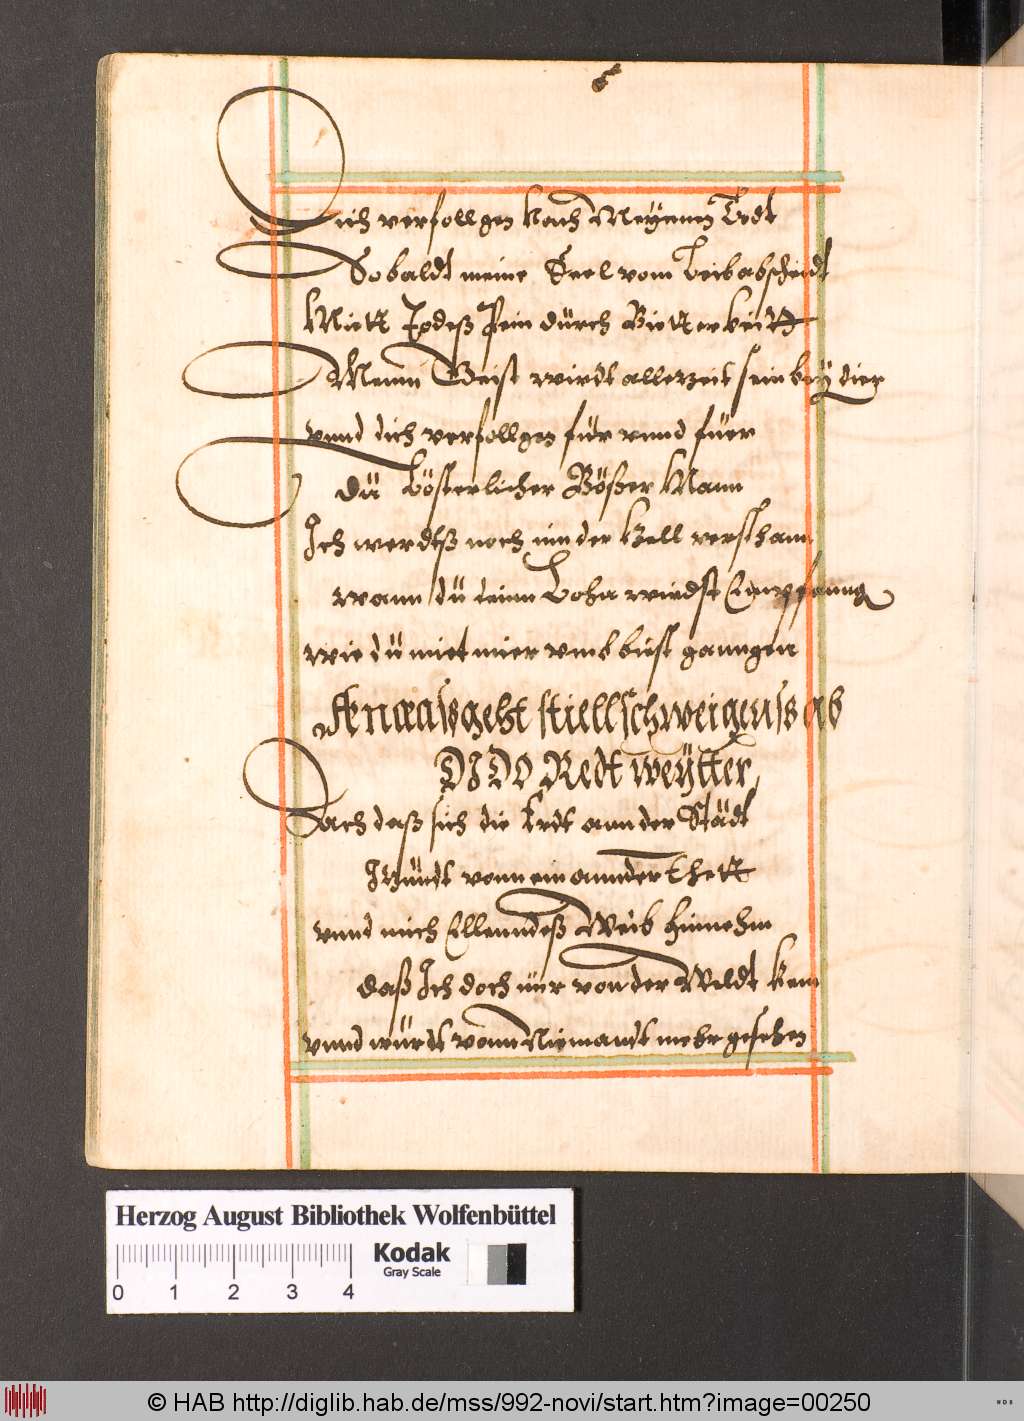 Dich verfollgen Nach Meynem Todt
So baldt meine Seel vom Leib abscheidt
Miett Todeß Pein dürch Bietterkeitt
Mein Geist wirdt allerzeit sein bey dier
vnnd dich verfollgen für vnnd füer
dü Lösterlicher Bößer Mann
Ich werdtß noch inn der Hell versthann
wann dü deinn Lohn wirdst Empfanng
wie dü miet mier vmb büst ganngen
Aeneass geht stiellschweigenss ab
DIDO Redt weÿtter
Dach daß sich die Erdt ann der Städt
Itzündt vonn einannder thett
vnnd mich Ellenndeß Weib hinnehm
daß Ich doch nür von der Weldt kem
vnnd würdt vonn Niemandt mehr gesehen
Herzog August Bibliothek Wolfenbüttel
Kodak
Gray Scale
0 1 2 3 4
© HAB http://diglib.hab.de/mss/992-novi/start.htm?image=00250